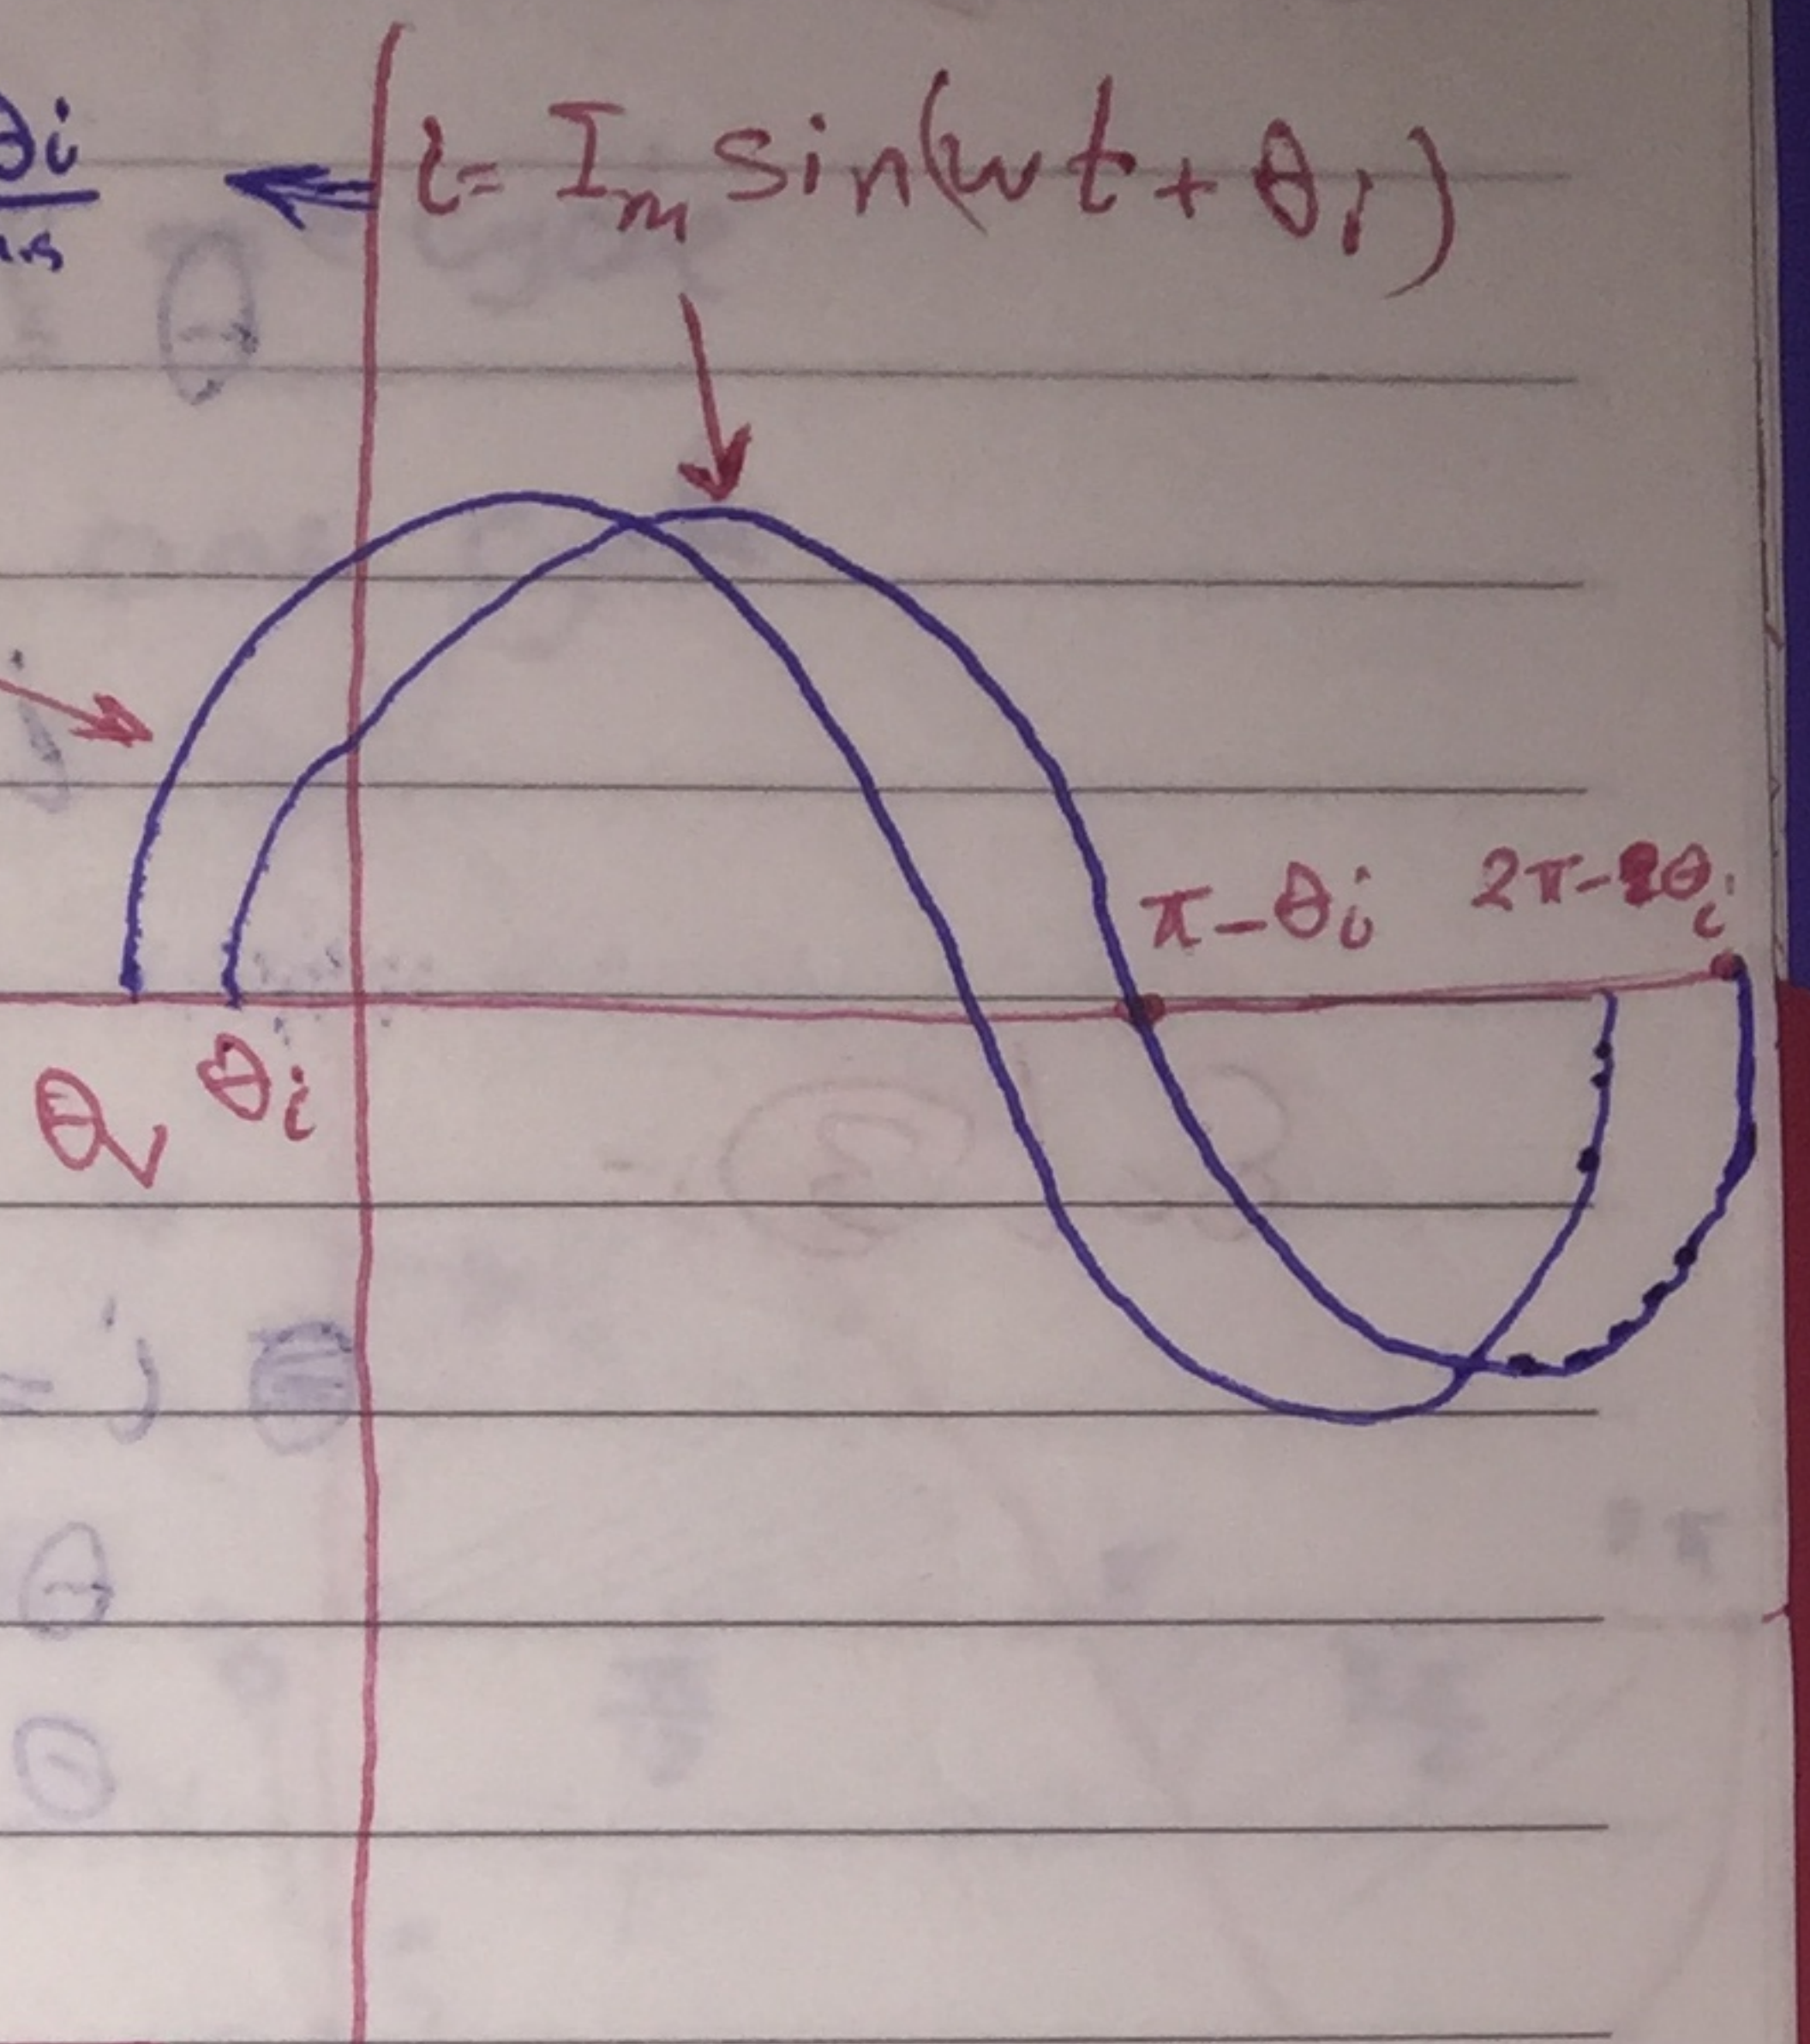 θi
i = I_m sin(wt + θ_i)
π - θ_i
2π - θ_i
θ_v θ_i